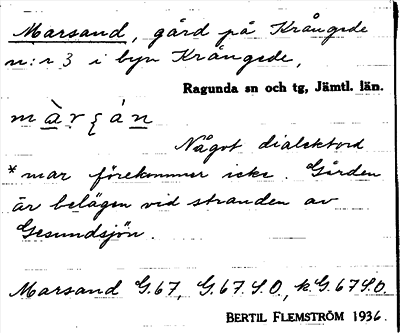 Marsand, gård på Krångede
n:r 3 i byn Krångede,
Ragunda sn och tg, Jämtl. län.
Något dialektord
*mar förekommer icke. Gården
är belägen vid stranden av
Gesundsjön.
Marsand G.67, G.67.S.O., k.G.67 S.O.
BERTIL FLEMSTRÖM 1936.